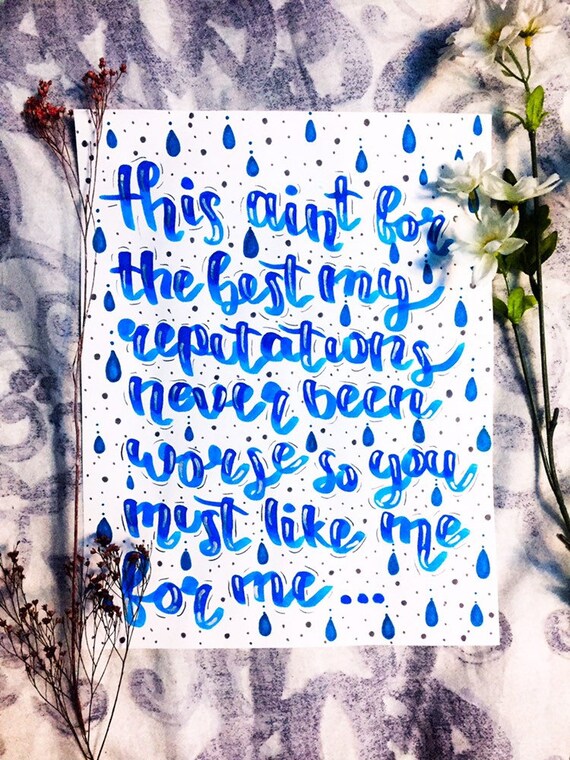 this aint for
the best my
reputations
never been
worse so you
must like me
for me ...